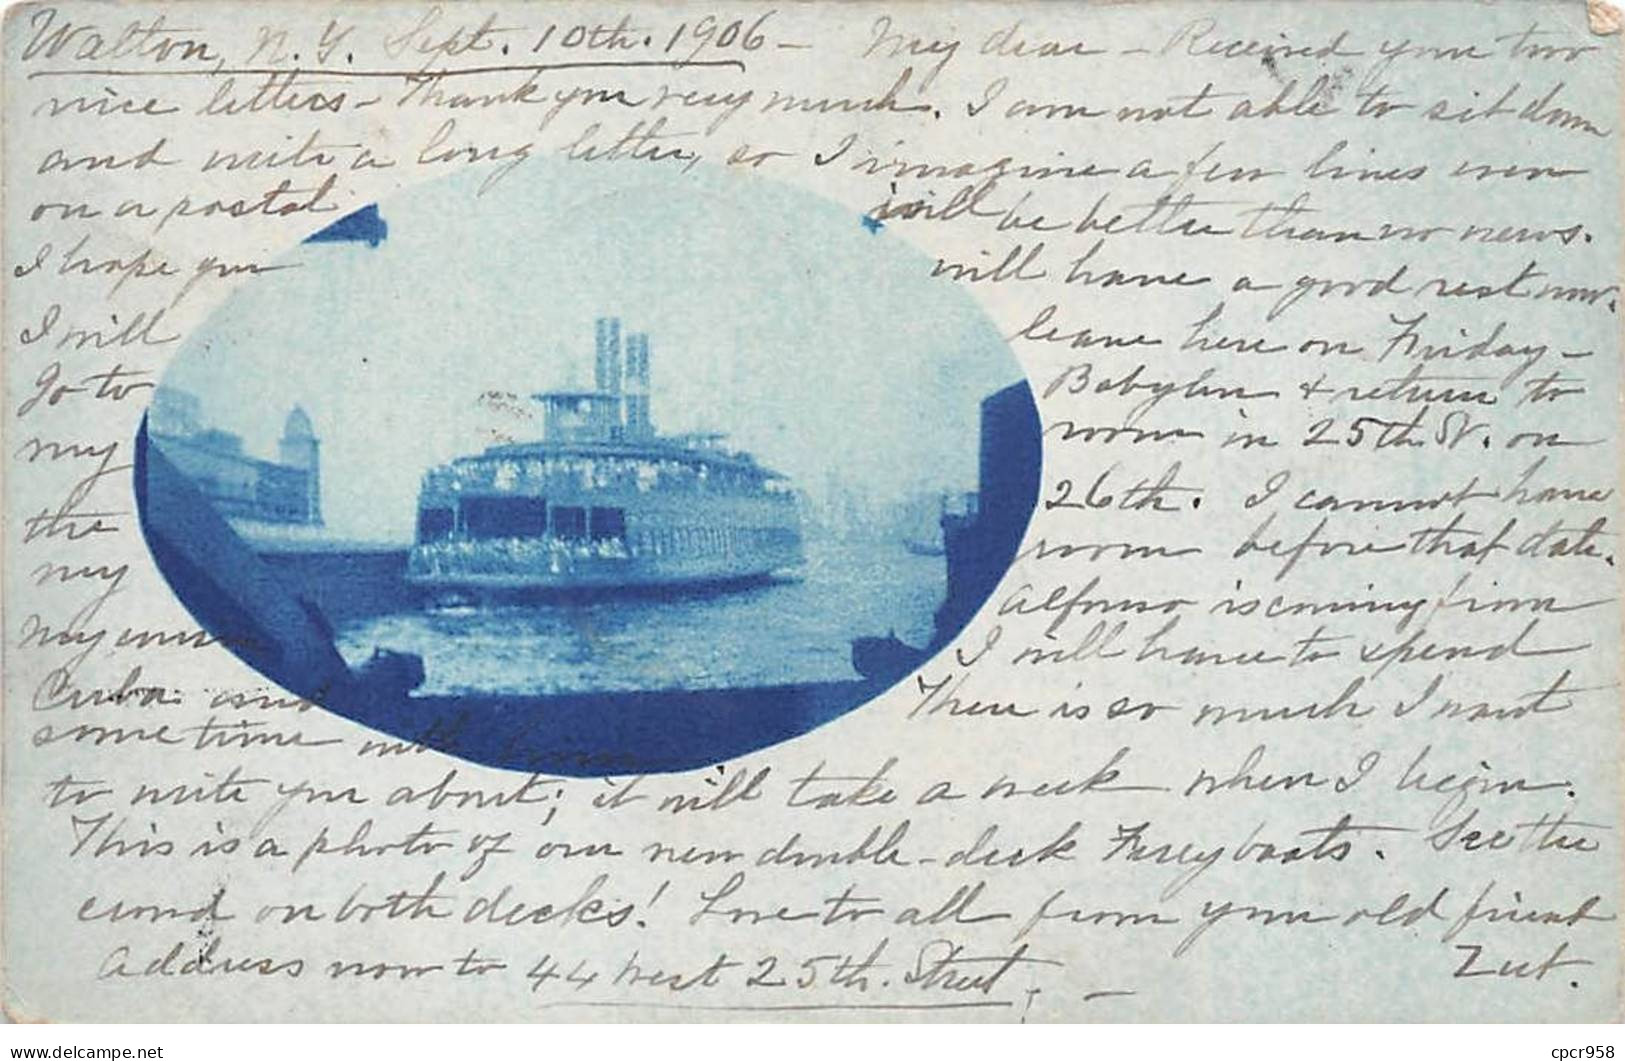 Walton, N.Y. Sept. 10th. 1906 - My dear - Received your two
nice letters - Thank you very much. I am not able to sit down
and write a long letter, so I imagine a few lines even
on a postal will be better than no news.
I hope you will have a good rest now.
I will leave here on Friday -
go to Babylon & return to
my room in 25th St. on
the 26th. I cannot have
my room before that date.
My Alfonso is coming from
Cuba and I will have to spend
some time with him There is so much I want
to write you about; it will take a week when I begin.
This is a photo of our new double-deck Ferry boats. See the
crowd on both decks! Love to all from your old friend
Address now to 44 West 25th. Street. - Zut.
cpcr958